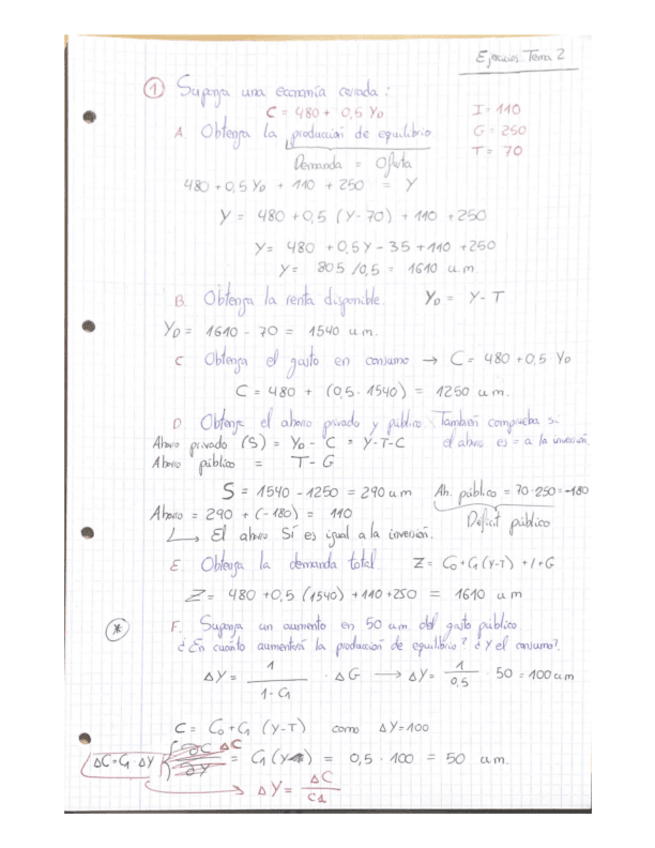 Ejercicios Tema 2
① Suponga una economía cerrada:
C = 480 + 0,5 YD
I = 110
A. Obtenga la producción de equilibrio
G = 250
T = 70
Demanda = Oferta
480 + 0,5 YD + 110 + 250 = Y
Y = 480 + 0,5 (Y-70) + 110 + 250
Y = 480 + 0,5Y - 35 + 110 + 250
Y = 805 / 0,5 = 1610 u.m.
B. Obtenga la renta disponible. YD = Y-T
YD = 1610 - 70 = 1540 u.m.
C Obtenga el gasto en consumo → C = 480 + 0,5 · YD
C = 480 + (0,5 · 1540) = 1250 u.m.
D. Obtenga el ahorro privado y público. También comprueba si
Ahorro privado (S) = YD - C = Y-T-C el ahorro es = a la inversión.
Ahorro público = T - G
S = 1540 - 1250 = 290 um Ah. público = 70-250 = -180
Ahorro = 290 + (-180) = 110 Déficit público
↳ El ahorro Sí es igual a la inversión.
E. Obtenga la demanda total Z = C0 + C1 (Y-T) + I + G
Z = 480 + 0,5 (1540) + 110 + 250 = 1610 u m
* F. Suponga un aumento en 50 u.m. del gasto público.
¿En cuánto aumentará la producción de equilibrio? ¿Y el consumo?
ΔY = 1 / 1-C1 · ΔG → ΔY = 1 / 0,5 · 50 = 100 um
C = C0 + C1 (Y-T) como ΔY=100
ΔC=C1·ΔY ∂C ΔC / ∂Y = C1 (Y) = 0,5 · 100 = 50 u.m.
→ ΔY = ΔC / C1